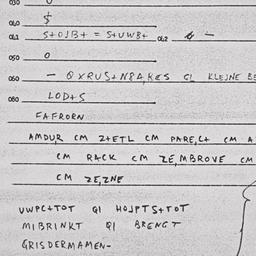 030
040 $
041 S+OJB+ = S+UWB+ 042 –
050 0
060 – QXRUS+N8A,KES CL KLEJNE
080 LOD+S
FAFRORN
AMDUR CM Z+ETL CM PARE,C+ CM A
CM RACK CM ZE,MBROVE CM
CM ZE,ZNE
UWPC+TOT QI HOJPTS+TOT
MIBRINKT QI BRENGT
GRISDERMAMEN-